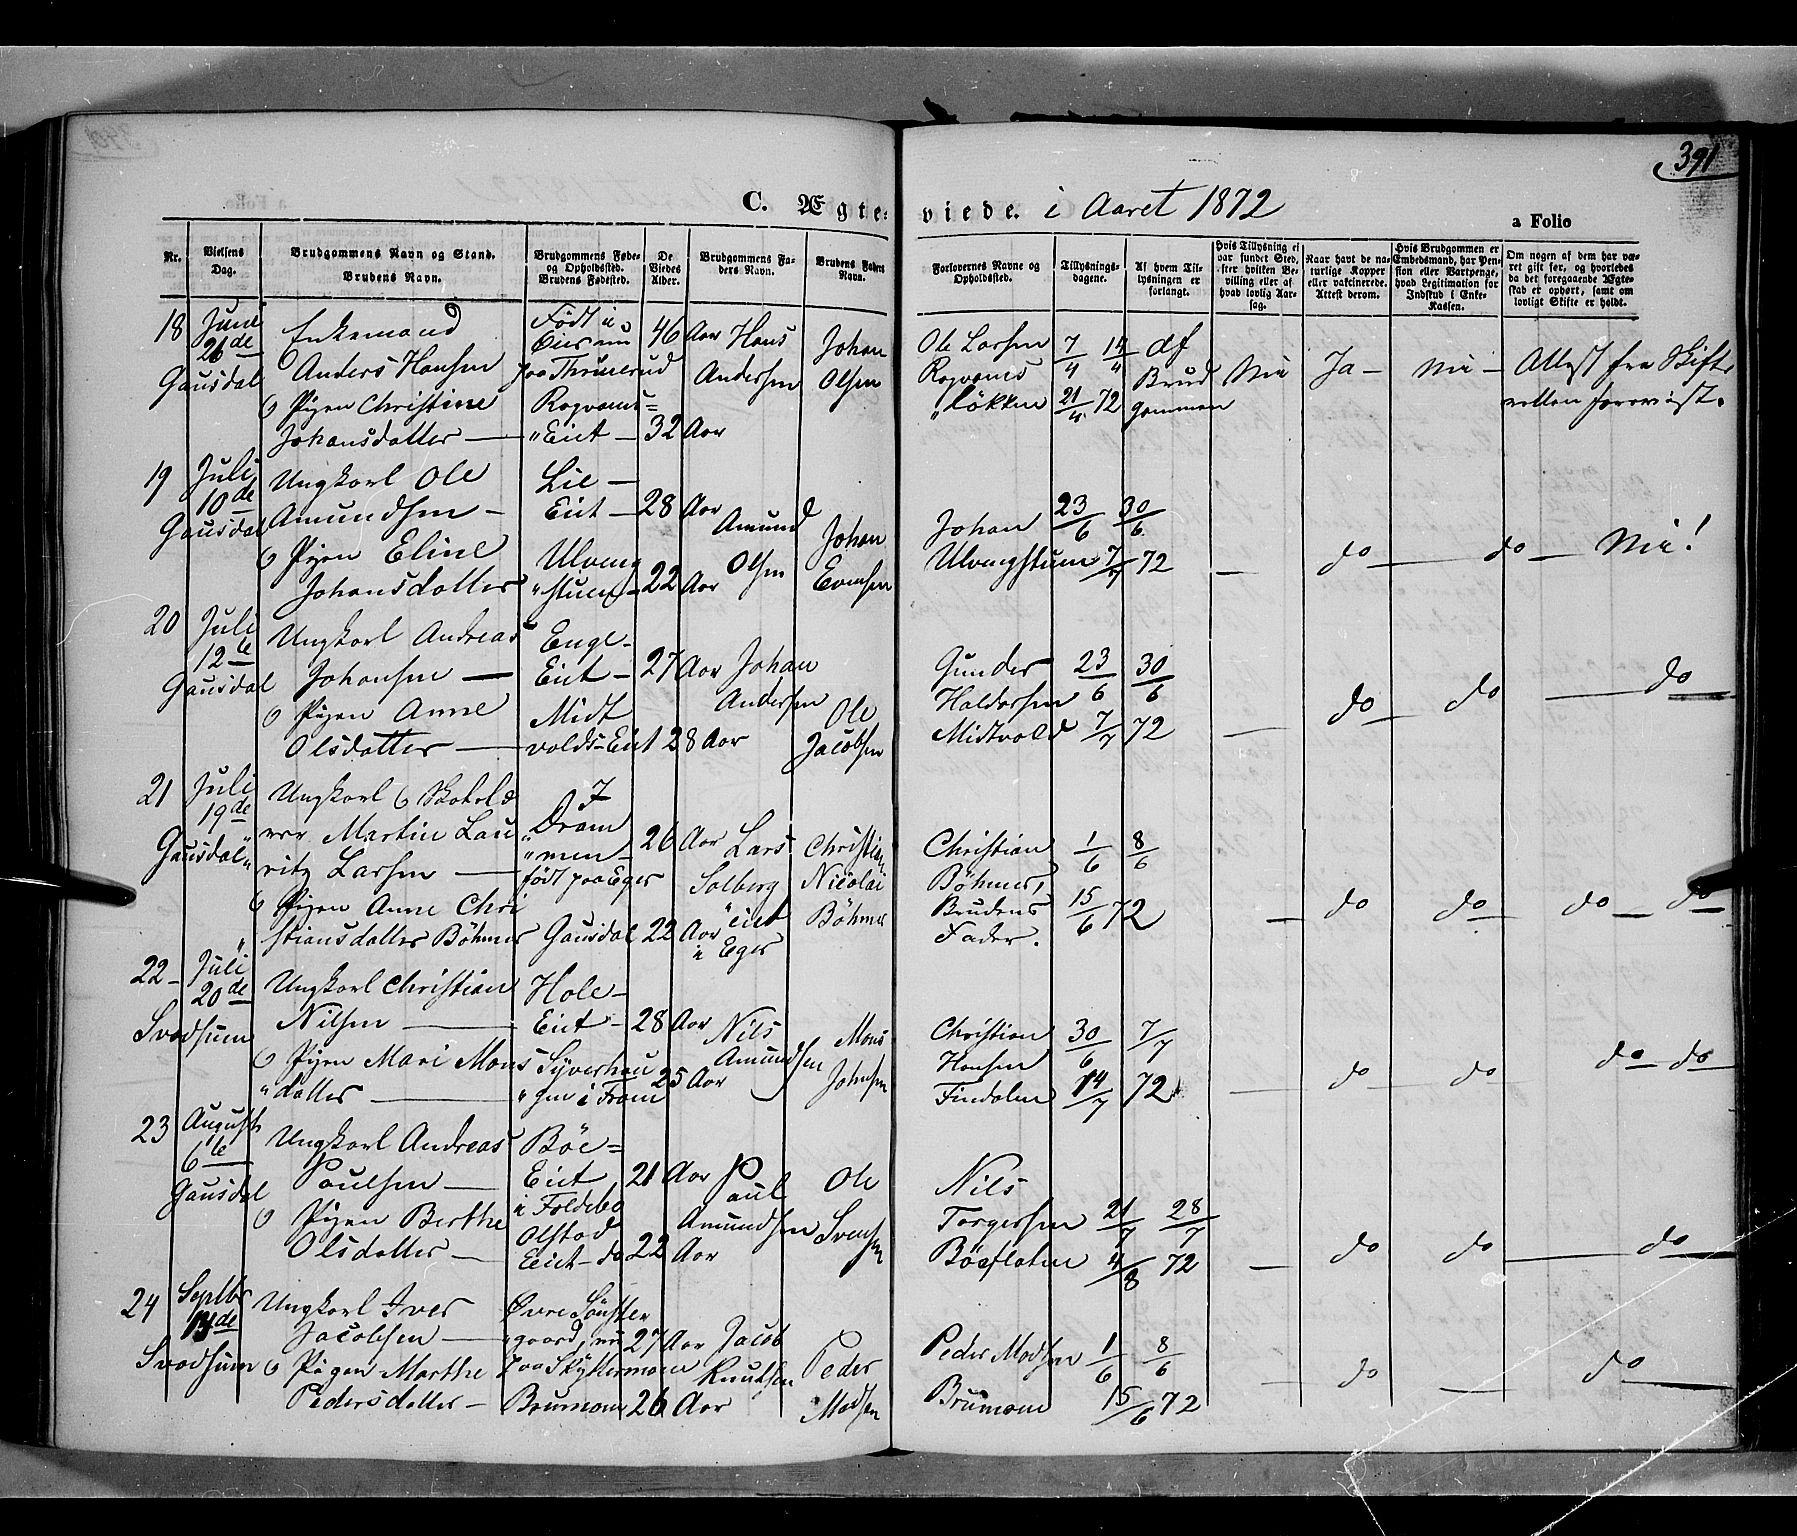 391
C. Ægteviede. i Aaret 1872
a Folio
Nr.
Vielsens Dag.
Brudgommens Navn og Stand. Brudens Navn.
Brudgommens Føde- og Opholdssted. Brudens Fødested.
De Viedes Alder.
Brudgommens Faders Navn.
Brudens Faders Navn.
Forlovernes Navne og Opholdssted.
Tillysningsdagene.
Af hvem Tillysningen er forlangt.
Hvis Tillysning ei var fundet Sted, efter hvilken Bevilling eller af hvad lovlig Aarsag.
Naar havt de naturlige Kopper eller vaktinerede. Attest derom.
Hvis Brudgommen er Embedsmand, har Pension eller Vartpenge, hvad Legitimation for Indskud i Enke-Kassen.
Om nogen af dem har været gift før, og hvorledes da det foregaaende Ægteskab er ophørt, samt om lovligt Skifte er holdt.
18 Juni Enkemand Født i 46 Aar Hans Johan Ole Larsen 7/4 14/4 af
26de Anders Hansen Eier nu Andersen Olsen Rogvans Brud Nei Ja - Nei - Attest fra Skifte
Gausdal paa Thruserud Løkken 21/4 72 gommen retten forevist.
o Pigen Christine Rogvans=
Johansdatter — Eiet — 32 Aar
19 Juli Ungkarl Ole Lie —
10de Amundsen — Eiet — 28 Aar Amund Johan Johan 23/6 30/6
Gausdal o Pigen Eline Ulveng Olsen Evensen Ulvengstuen 7/7 72 — do — do — Nei!
Johansdatter stuen — 22 Aar
20 Juli Ungkarl Andreas Enge-
12te Johansen — Eiet — 27 Aar Johan Gunder 23/6 30/6
Gausdal o Pigen Anne Midt Andersen Ole Haldorsen — do — do — do
Olsdatter — volds-Eiet 28 Aar Jacobsen Midtvold 7/7 72
21 Juli Ungkarl o
19de Martin Lau Dram
Gausdal ritz Larsen — men — 26 Aar Lars Christian Christian 1/6 8/6
født paa Eger Solberg Nicolai Böhmer,
o Pigen Anne Chri eiet Böhmer Brudens 15/6 72 — do — do — do — do
stiansdatter Böhmer Gausdal 22 Aar i Eger Fader.
22 — Juli Ungkarl Christian Hole —
20de Nilsen — Eiet — 28 Aar Nils Mons Christian 30/6 7/7
Svadsum o Pigen Mari Mons Syverhau Amundsen Johnsen Hansen — do — do — do — do
datter — gen i Fron 25 Aar Findalen 14/7 72
23 August Ungkarl Andreas Böe=
6te Poulsen — Eiet 21 Aar Paul Ole Nils
Gausdal i Foldebo
o Pigen Berthe Olstad Amundsen Svensen Torgersen 21/7 28/7
Olsdatter — Eiet — do 22 Aar Böeflaten 4/8 72 — do — do — do
24 Septbr Ungkarl Iver Övre
13de Jacobsen — gaard, nu 27 Aar Jacob Peder Madsen 1/6 8/6
Svadsum o Pigen Marthe paa Skyttermoen Knudsen Peder — do — do
Pedersdatter — Brumoen 26 Aar Madsen Brumoen 15/6 72